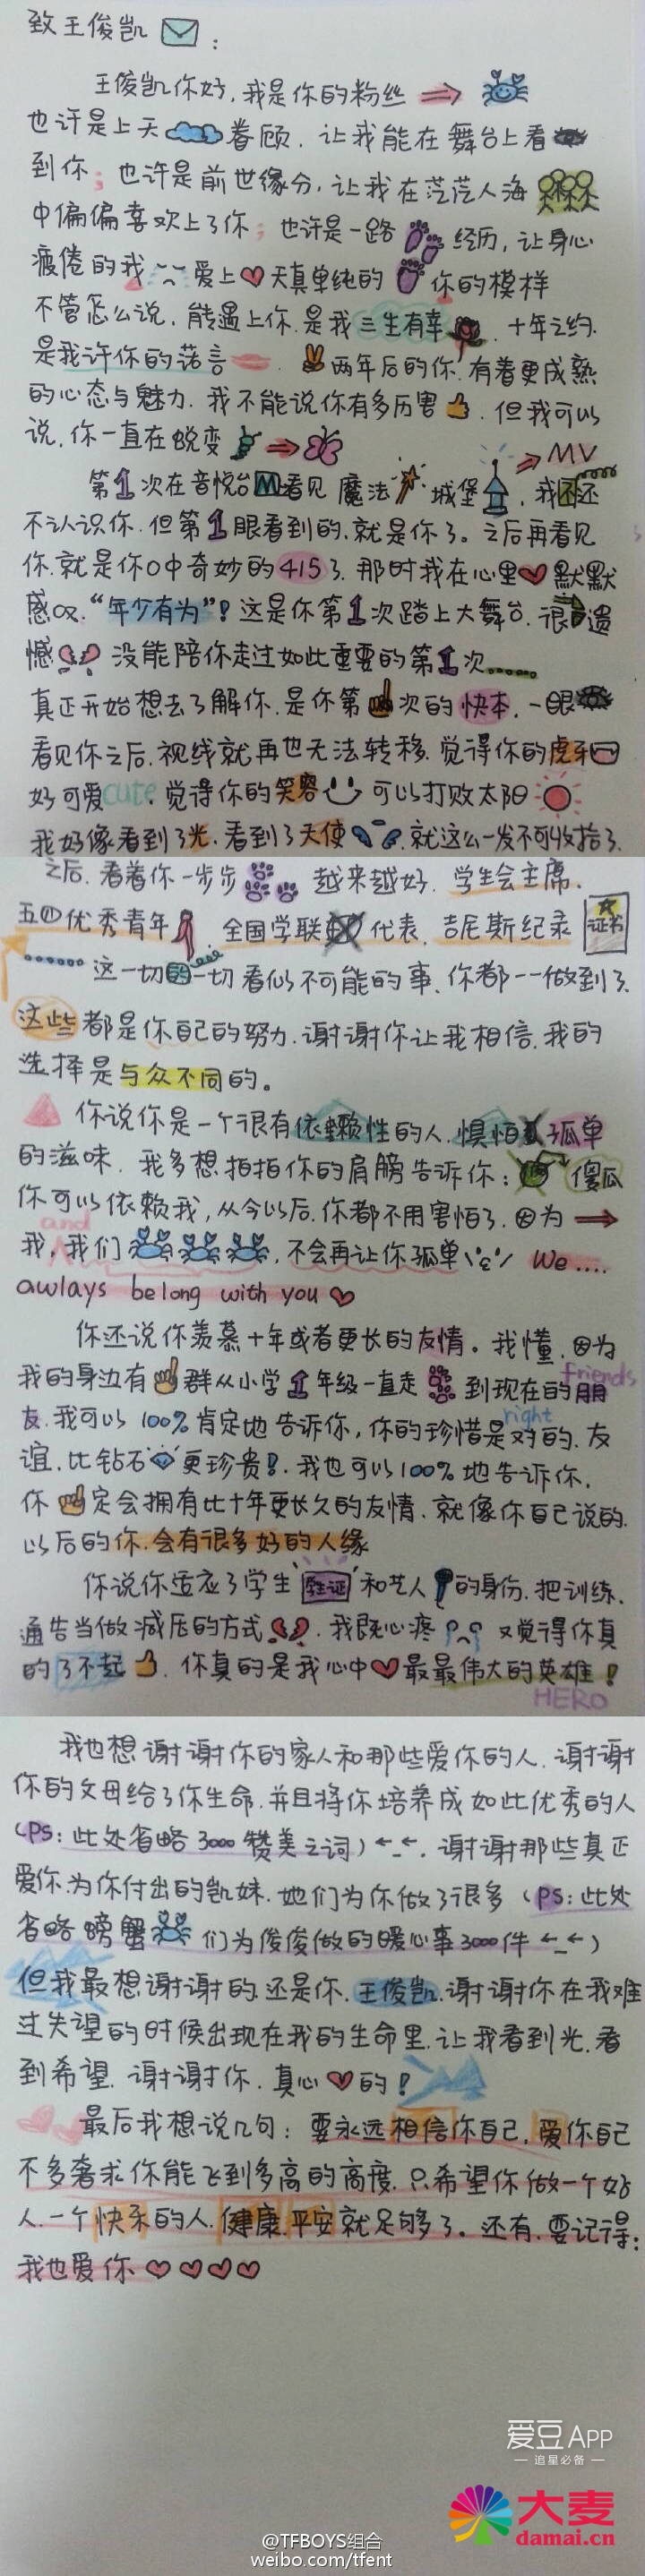 致王俊凯：
王俊凯你好，我是你的粉丝
也许是上天眷顾，让我能在舞台上看
到你；也许是前世缘分，让我在茫茫人海
中偏偏喜欢上了你；也许是一路经历，让身心
疲倦的我爱上天真单纯的你的模样
不管怎么说，能遇上你，是我三生有幸，十年之约，
是我许你的诺言，两年后的你，有着更成熟
的心态与魅力，我不能说你有多厉害，但我可以
说，你一直在蜕变
第1次在音悦台看见魔法城堡MV，我还
不认识你，但第1眼看到的，就是你了。之后再看见
你，就是你口中奇妙的415了，那时我在心里默默
感叹，“年少有为”！这是你第1次踏上大舞台，很遗
憾没能陪你走过如此重要的第1次……
真正开始想去了解你，是你第次的快本，一眼
看见你之后，视线就再也无法转移，觉得你的虎牙
好可爱cute，觉得你的笑容可以打败太阳
我好像看到了光，看到了天使，就这么一发不可收拾了，
之后，看着你一步步越来越好，学生会主席，
五四优秀青年，全国学联代表，吉尼斯纪录证书
……这一切的一切看似不可能的事，你都一一做到了，
这些都是你自己的努力，谢谢你让我相信，我的
选择是与众不同的。
你说你是一个很有依赖性的人，惧怕孤单
的滋味，我多想拍拍你的肩膀告诉你：傻瓜
你可以依赖我，从今以后，你都不用害怕了，因为
and
我，我们，不会再让你孤单 We....
awlays belong with you
你还说你羡慕十年或者更长的友情。我懂，因为
我的身边有群从小学1年级一直走到现在的朋
friends
友，我可以100%肯定地告诉你，你的珍惜是对的，友
right
谊，比钻石更珍贵！，我也可以100%地告诉你，
你定会拥有比十年更长久的友情，就像你自己说的，
以后的你，会有很多好的人缘
你说你适应了学生和艺人的身份，把训练、
通告当做减压的方式，我既心疼又觉得你真
的了不起，你真的是我心中最最伟大的英雄！
HERO
我也想谢谢你的家人和那些爱你的人，谢谢
你的父母给了你生命，并且将你培养成如此优秀的人
（PS：此处省略3000赞美之词）←_←，谢谢那些真正
爱你，为你付出的凯妹，她们为你做了很多（PS：此处
省略螃蟹们为俊俊做的暖心事3000件←_←）
但我最想谢谢的，还是你，王俊凯，谢谢你在我难
过失望的时候出现在我的生命里，让我看到光，看
到希望，谢谢你，真心的！
最后我想说几句：要永远相信你自己，爱你自己
不多奢求你能飞到多高的高度，只希望你做一个好
人，一个快乐的人，健康，平安就足够了。还有，要记得：
我也爱你
爱豆APP
—追星必备—
大麦
damai.cn
@TFBOYS组合
weibo.com/tfent